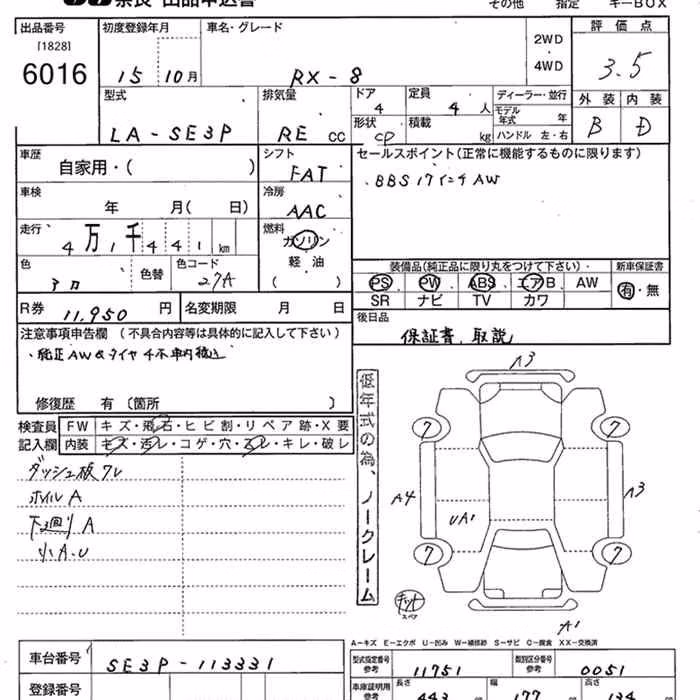 奈良 出品申込書 その他 指定 キーBOX
出品番号 初度登録年月 車名・グレード 2WD 評価点
[1828] ・
6016 15 10月 RX-8 4WD 3.5
型式 排気量 ドア 定員 ディーラー・並行 外装 内装
4 4人 モデル年式 年
LA-SE3P RE cc 形状 積載 kg ハンドル 左・右 B D
CP
車歴 シフト セールスポイント(正常に機能するものに限ります)
自家用・( ) FAT BBS 17インチ AW
車検 冷房
年 月( 日) AAC
走行 燃料
4万1千441km ガソリン
軽・油
( )
色 色替 色コード 装備品(純正品に限り丸をつけて下さい) 新車保証書
27A PS PW ABS エアB AW 有・無
SR ナビ TV カワ
R券 11,950円 名変期限 月 日 後日品
注意事項申告欄(不具合内容等は具体的に記入して下さい) 保証書、取説
・純正AW&タイヤ4本車内積込
修復歴 有 〔箇所 〕
検査員 FW キズ・飛石・ヒビ割・リペア跡・X要
記入欄 内装 キズ・汚レ・コゲ・穴・スレ・キレ・破レ
ダッシュ板ワレ
ホイルA
下廻りA
小A.U
低年式の為、ノークレーム
A3
7 7
A4 A3
UA1
7 7
キット
スペア
A1
A-キズ E-エクボ U-凹み W-補修跡 S-サビ C-腐食 XX-交換済
車台番号 SE3P-113331 型式指定番号 参考 11751 類別区分番号 参考 0051
登録番号 車庫証明用 参考 長さ 443 幅 177 高さ 134